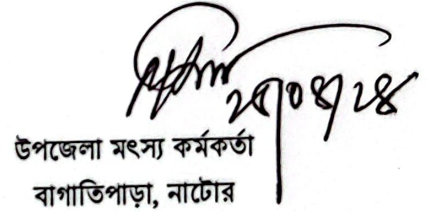 ২৪/০৪/২৪
উপজেলা মৎস্য কর্মকর্তা
বাগাতিপাড়া, নাটোর